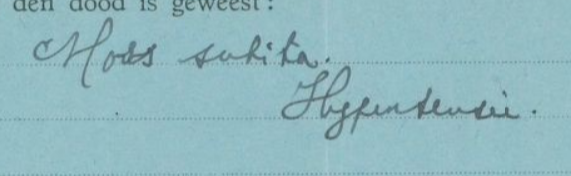 den dood is geweest:
Mors subita.
Hypertensie.